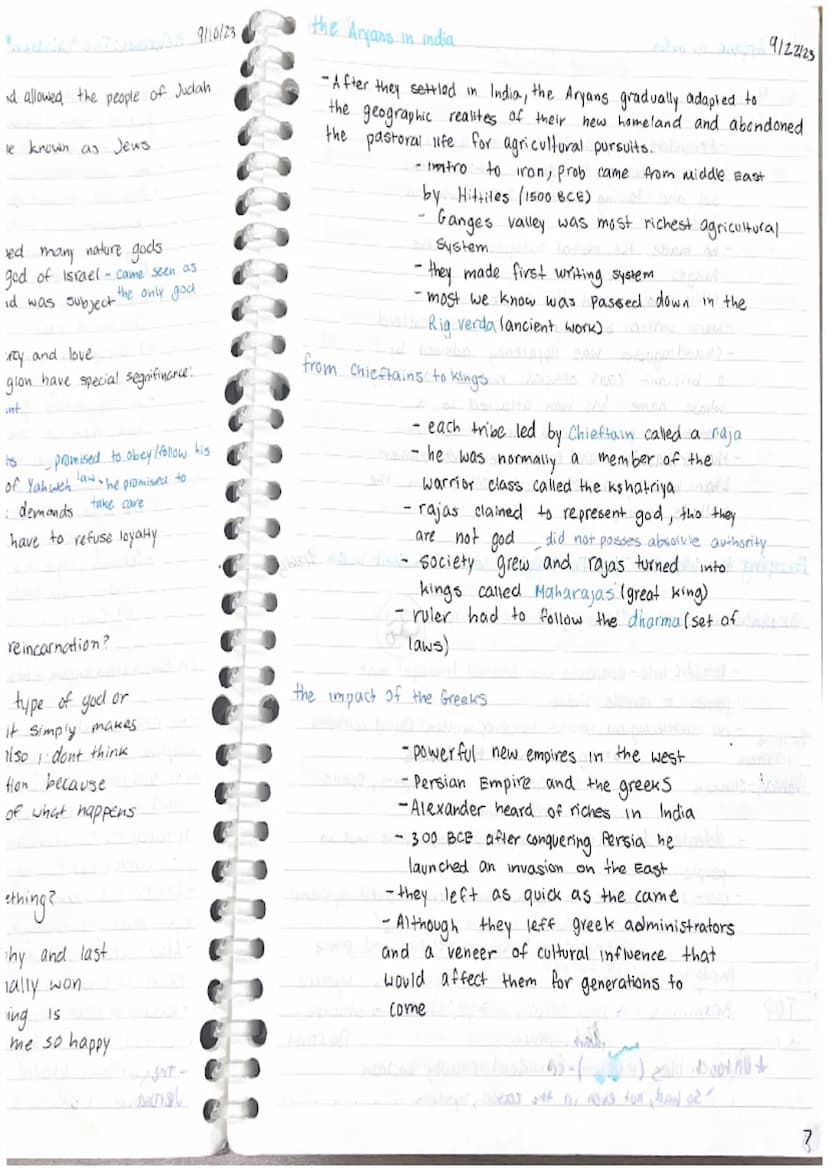 9/10/23
nd allowed the people of Judah
e known as Jews
ped many nature gods
god of Israel - came seen as
the only god
nd was subject
rcy and love
gion have special segnifinance:
ant
ts - promised to obey/follow his
law
of Yahweh - he promised to
take care
: demands
have to refuse loyalty
reincarnation?
type of god or
it simply makes
also i dont think
tion because
of what happens
ething?
hy and last
nally won
ing is
me so happy
the Aryans in india
9/22/23
- After they settled in India, the Aryans gradually adapted to
the geographic realites of their new homeland and abandoned
the pastoral life for agricultural pursuits.
- intro to iron, prob came from Middle East
by Hittiles (1500 BCE)
- Ganges valley was most richest agricultural
system
- they made first writing system
- most we know was passed down in the
Rig verda (ancient work)
from Chieftains to kings
- each tribe led by Chieftain called a raja
- he was normally a member of the
warrior class called the kshatriya
- rajas claimed to represent god, tho they
are not god - did not posses absolute authority
- society grew and rajas turned into
kings called Maharajas (great king)
- ruler had to follow the dharma (set of
laws)
the impact of the Greeks
- powerful new empires in the west
- Persian Empire and the greeks
- Alexander heard of riches in India
- 300 BCE after conquering Persia he
launched an invasion on the East
- they left as quick as the came
- Although they left greek administrators
and a veneer of cultural influence that
would affect them for generations to
come
7